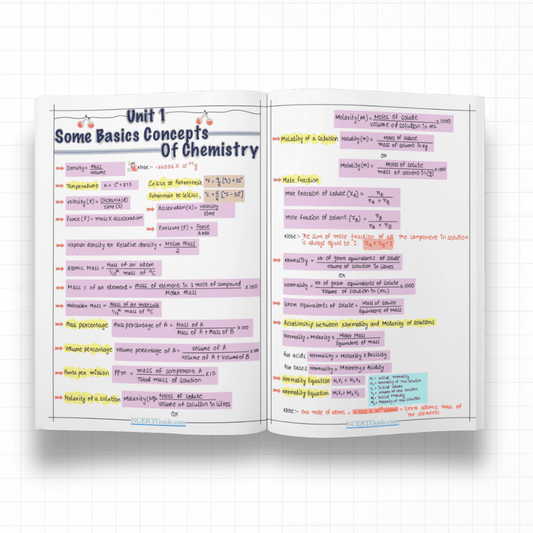 Unit 1
Some Basics Concepts
Of Chemistry
Density = Mass / volume
Note :-
Temperature K = C° + 273
Celcius to Fahrenheit
Fahrenheit to Celcius,
velocity (v) = Distance(d) / time(s)
Acceleration(a) = velocity / time
Force (F) = mass x acceleration
Pressure (P) = Force / Area
Vapour density or Relative density = Molar mass / 2
Atomic Mass = Mass of an atom / 1/12th mass of 12C
Mass % of an element = Mass of element in 1 mole of compound / Molar mass x 100
Molecular Mass = Mass of an molecule / 1/12th mass of 12C
Mass percentage Mass percentage of A = Mass of A / Mass of A + Mass of B x 100
Volume percentage Volume percentage of A = Volume of A / Volume of A + Volume of B x 100
Parts per million PPm = mass of component A / Total mass of solution
Molarity of a solution Molarity(M) = Moles of solute / volume of solution in litres
or
NCERTGuide.com
Molarity(M) = Moles of solute / volume of solution in mL x 1000
Molality of a solution Molality(m) = Moles of solute / mass of solvent in kg
or
Molality(m) = Moles of solute / mass of solvent in (g) x 1000
Mole fraction
Mole fraction of solute (XB) = nB / nA + nB
Mole fraction of solvent (XA) = / nA + nB
Note:- The sum of mole fraction of all the component in solution
is always equal to 1 XA + XB = 1
Normality = no of gram equivalents of solute / volume of solution in litres
or
Normality = No of gram equivalents of solute / volume of solution in (mL) x 1000
Gram equivalents of solute = Mass of solute / Equivalent of mass
Relationship between Normality and Molarity of solutions
Normality = Molarity x Molar Mass / Equivalent of mass
for acids Normality = Molarity x Basicity
For bases Normality = Molarity x Acidity
Normality Equation N1V1 = N2V2
Normality Equation M1V1 = M2V2
N1 = Initial normality
N2 = Normality of new solution
V1 = Initial volume
V2 = volume of new solution
M1 = Initial molarity
M2 = Molarity of new solution
Note:- One mole of atoms = = gram atomic mass of
the elements
NCERTGuide.com